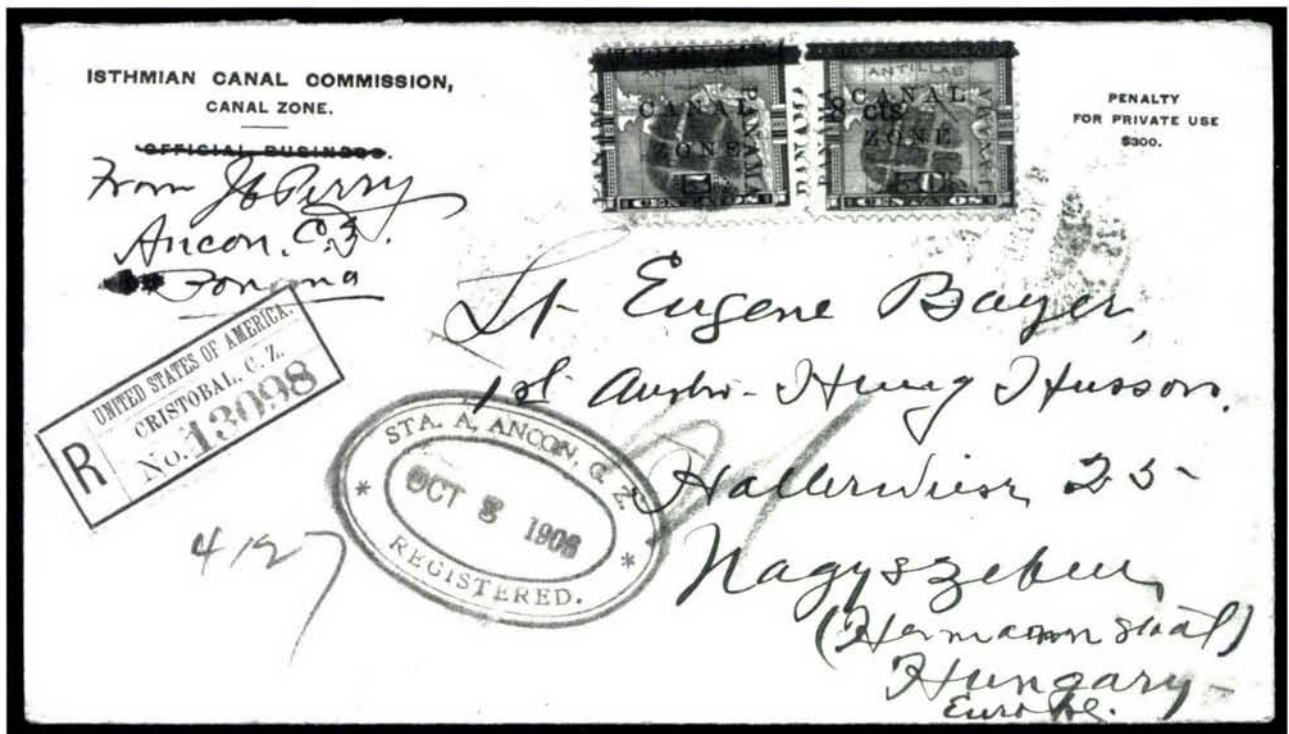 ISTHMIAN CANAL COMMISSION,
CANAL ZONE.
OFFICIAL BUSINESS.
From J. C. Perry
Ancon, C.Z.
Panama
PENALTY
FOR PRIVATE USE
$300.
ANTILLAS
CANAL
ZONE
PANAMA
CENTAVOS
ANTILLAS
CANAL
8 cts
ZONE
PANAMA
50
CENTAVOS
UNITED STATES OF AMERICA.
CRISTOBAL, C. Z.
R No. 13098
STA. A, ANCON, C. Z.
OCT 3 1906
REGISTERED.
Lt. Eugene Bayer,
1st Austro-Hung Hussars.
Hallerwiese 25
Nagyszeben
(Hermannstadt)
Hungary
Europe.